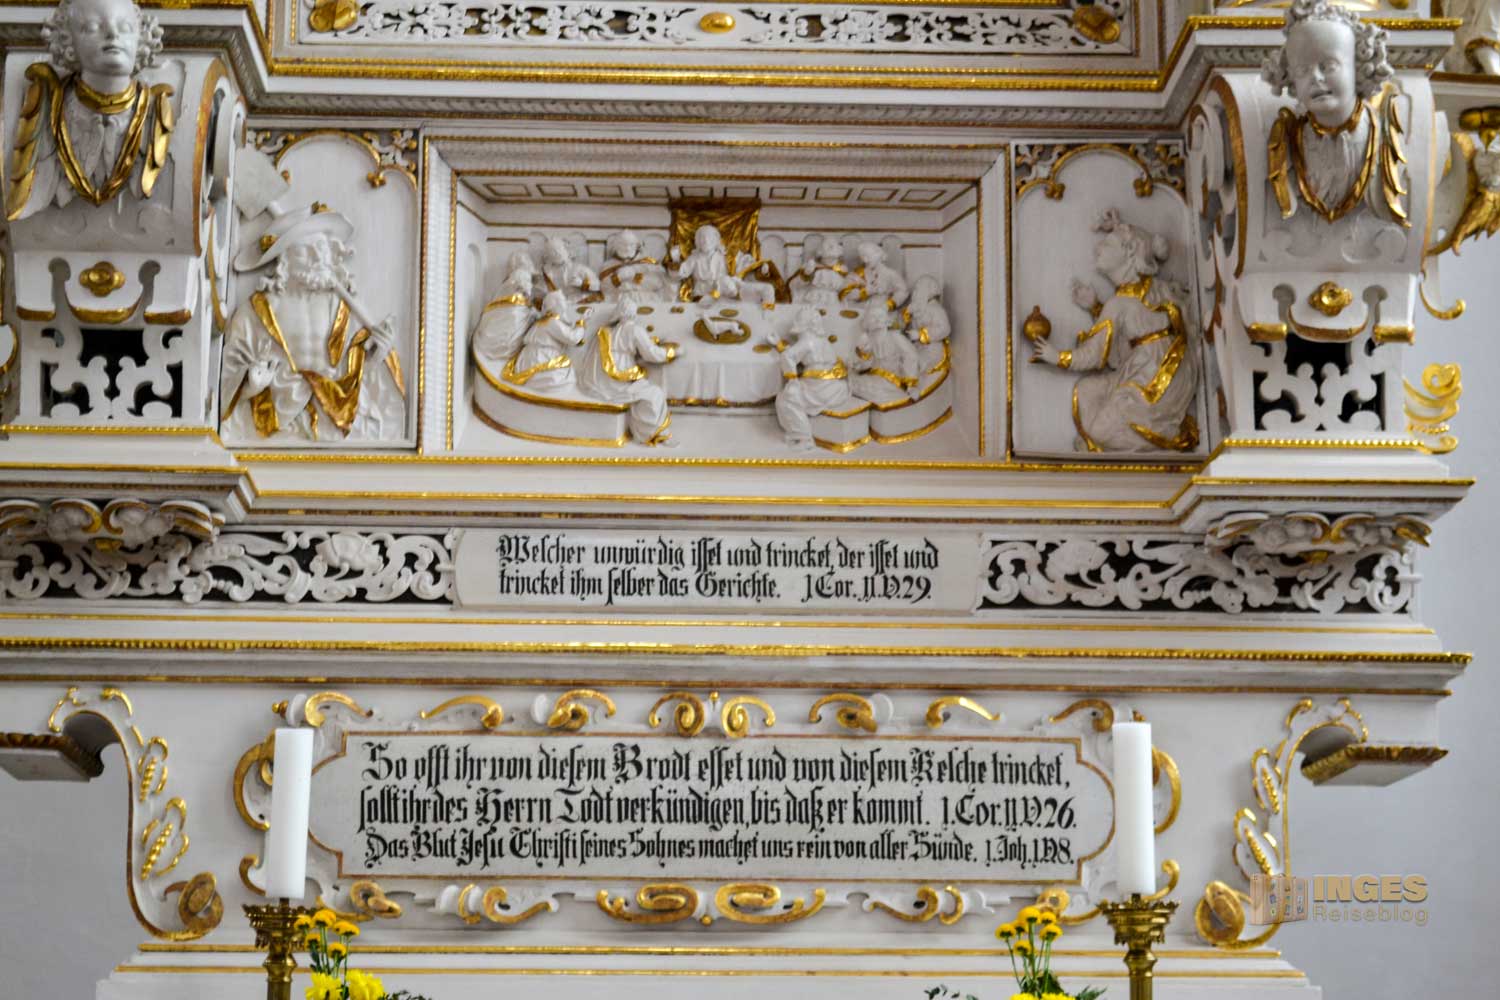 Welcher unwürdig isset und trincket, der isset und
trincket ihm selber das Gerichte. 1 Cor. 11. V. 29.
So offt ihr von diesem Brodt esset und von diesem Kelche trincket,
sollt ihr des Herrn Todt verkündigen, bis daß er kommt. 1. Cor. 11. V. 26.
Das Blut Jesu Christi seines Sohnes machet uns rein von aller Sünde. 1. Joh. 1. V. 8.
INGES
Reiseblog